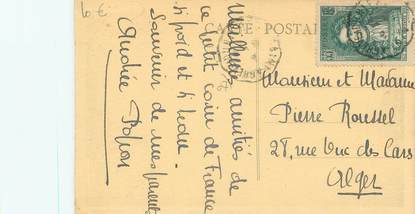 6 €
CARTE POSTALE
Meilleures amitiés de
ce petit coin de France
si froid et si
Souvenir de mes parents
Andrée
Monsieur et Madame
Pierre Roussel
28, rue Duc des Cars
Alger